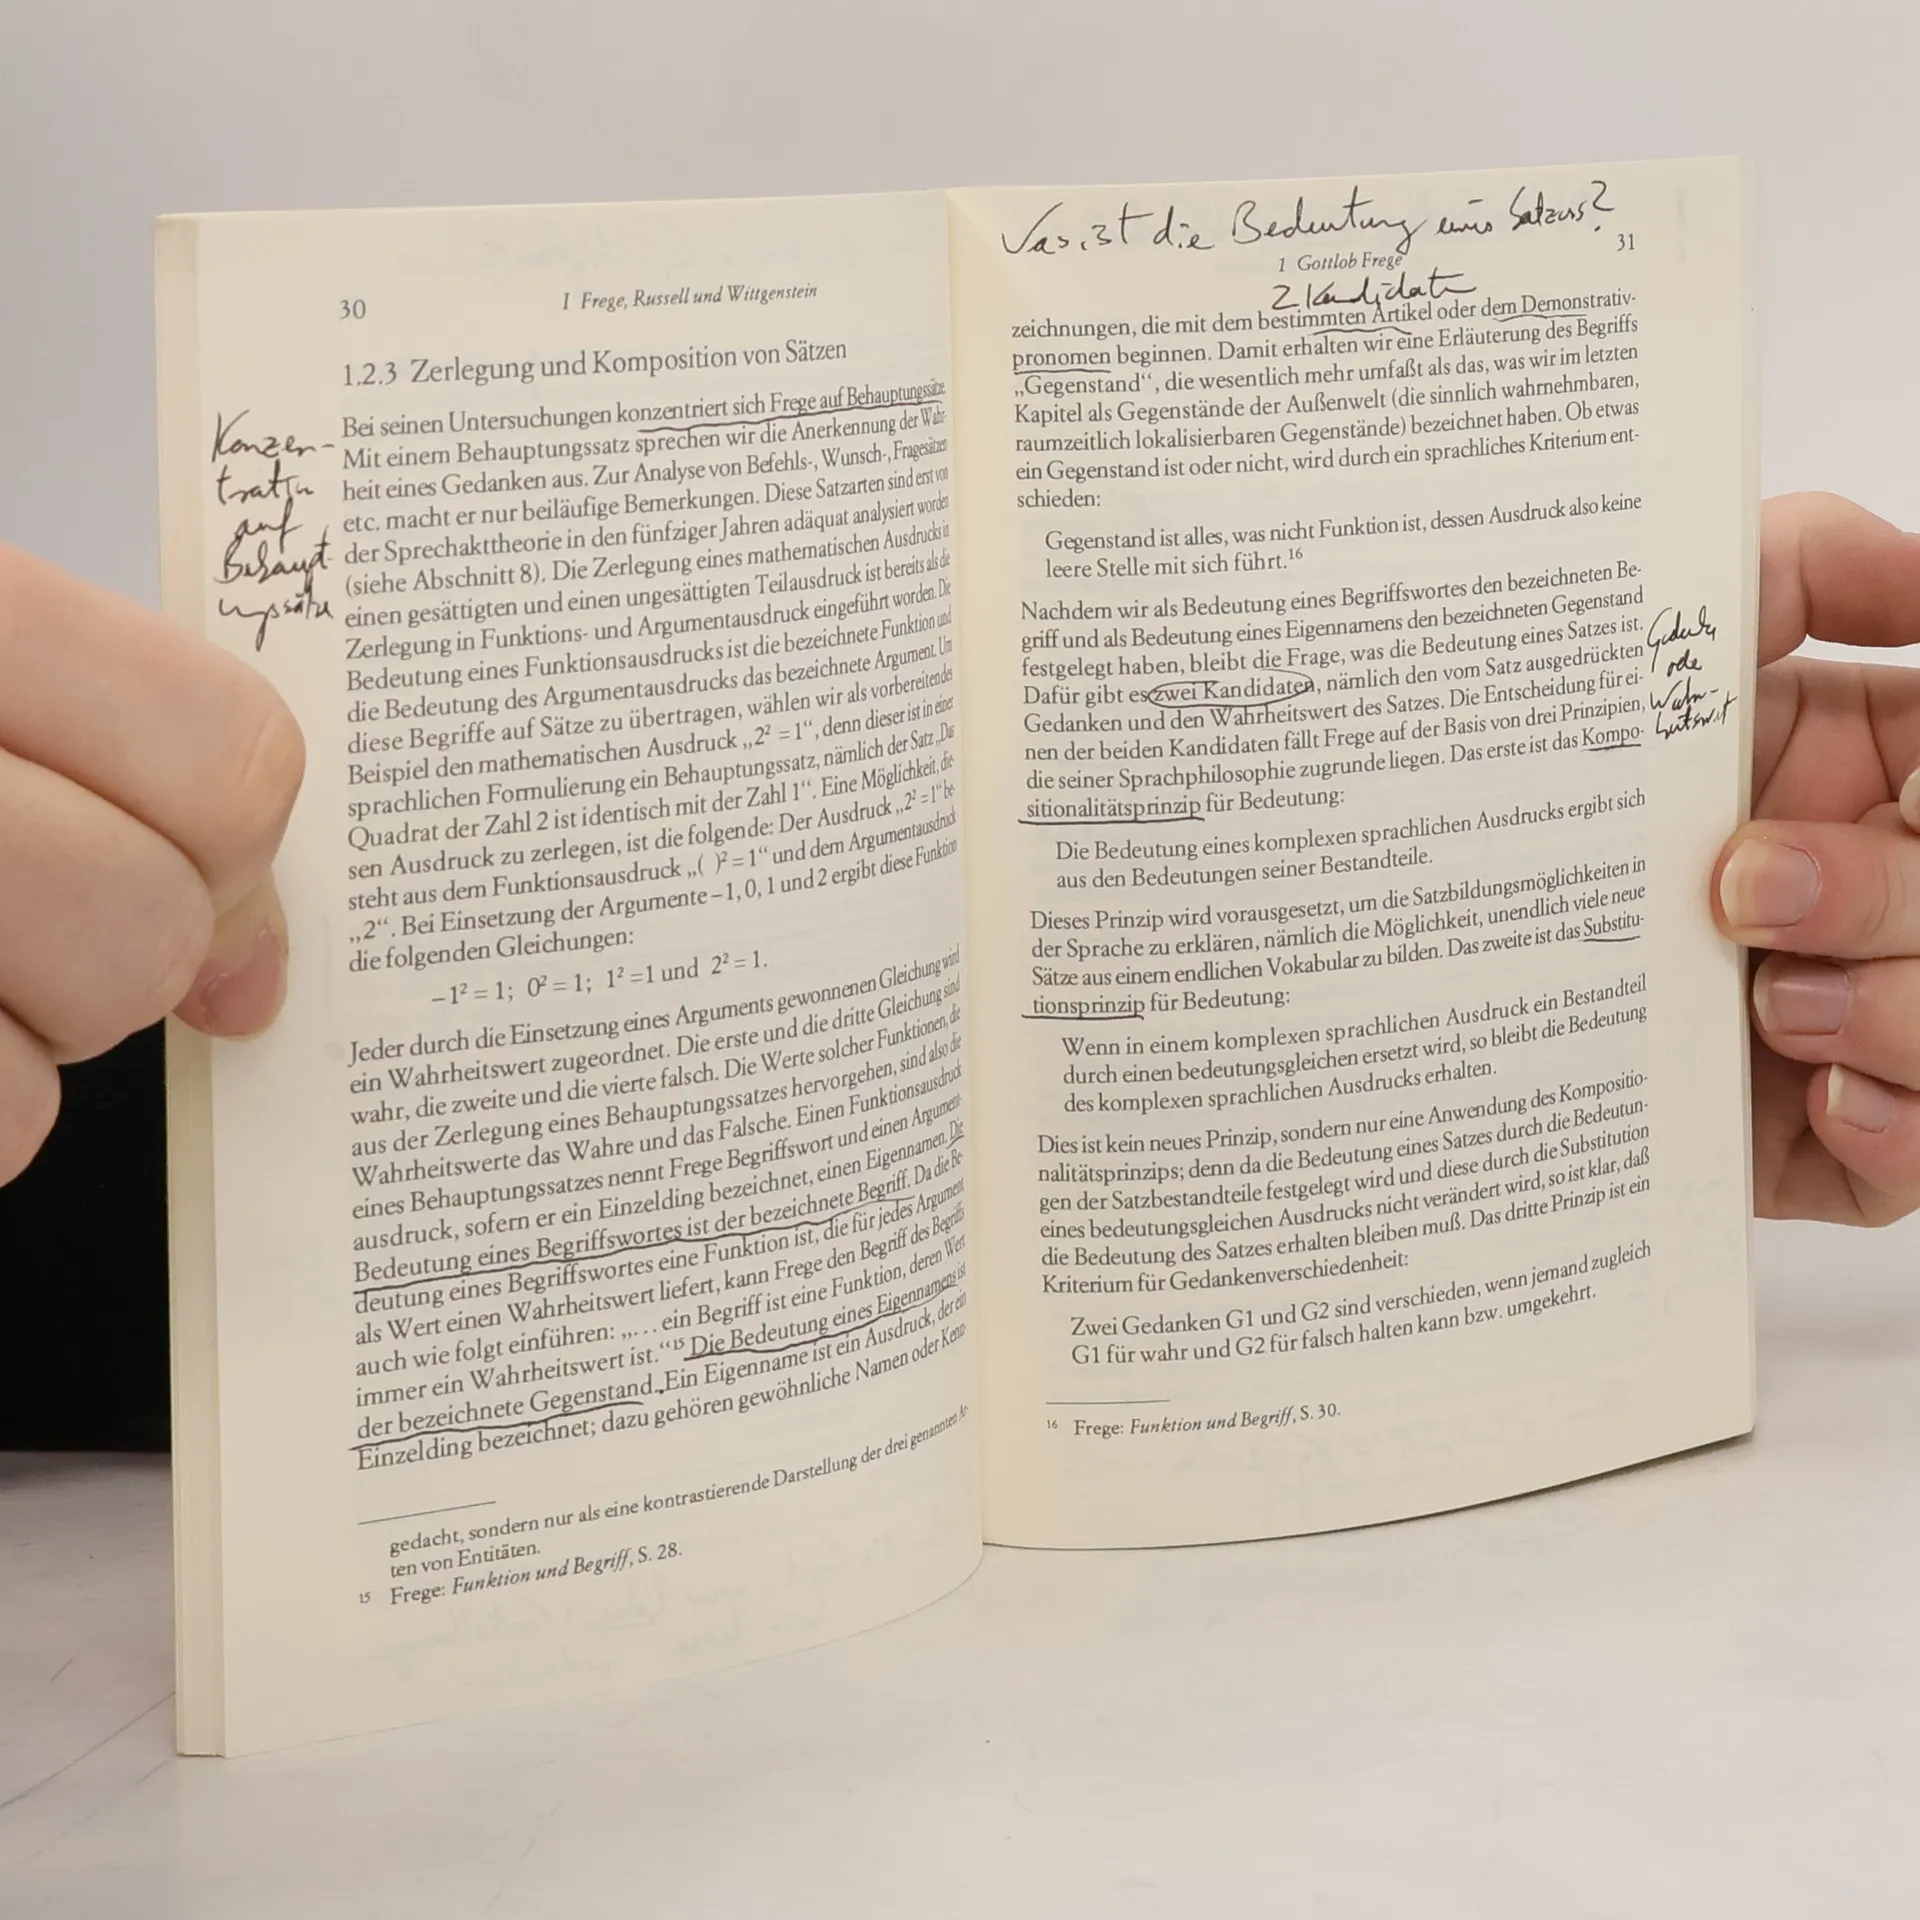 30
I Frege, Russell und Wittgenstein
1.2.3 Zerlegung und Komposition von Sätzen
Bei seinen Untersuchungen konzentriert sich Frege auf Behauptungssätze
Mit einem Behauptungssatz sprechen wir die Anerkennung der Wahr-
heit eines Gedanken aus. Zur Analyse von Befehls-, Wunsch-, Fragesätzen
etc. macht er nur beiläufige Bemerkungen. Diese Satzarten sind erst von
der Sprechakttheorie in den fünfziger Jahren adäquat analysiert worden
(siehe Abschnitt 8). Die Zerlegung eines mathematischen Ausdrucks in
einen gesättigten und einen ungesättigten Teilausdruck ist bereits als die
Zerlegung in Funktions- und Argumentausdruck eingeführt worden. Die
Bedeutung eines Funktionsausdrucks ist die bezeichnete Funktion und
die Bedeutung des Argumentausdrucks das bezeichnete Argument. Um
diese Begriffe auf Sätze zu übertragen, wählen wir als vorbereitendes
Beispiel den mathematischen Ausdruck „2² = 1“, denn dieser ist in einer
sprachlichen Formulierung ein Behauptungssatz, nämlich der Satz „Das
Quadrat der Zahl 2 ist identisch mit der Zahl 1“. Eine Möglichkeit, die-
sen Ausdruck zu zerlegen, ist die folgende: Der Ausdruck „2² = 1“ be-
steht aus dem Funktionsausdruck „( )² = 1“ und dem Argumentausdruck
„2“. Bei Einsetzung der Argumente –1, 0, 1 und 2 ergibt diese Funktion
die folgenden Gleichungen:
–1² = 1; 0² = 1; 1² =1 und 2² = 1.
Jeder durch die Einsetzung eines Arguments gewonnenen Gleichung wird
ein Wahrheitswert zugeordnet. Die erste und die dritte Gleichung sind
wahr, die zweite und die vierte falsch. Die Werte solcher Funktionen, die
aus der Zerlegung eines Behauptungssatzes hervorgehen, sind also die
Wahrheitswerte das Wahre und das Falsche. Einen Funktionsausdruck
eines Behauptungssatzes nennt Frege Begriffswort und einen Argument-
ausdruck, sofern er ein Einzelding bezeichnet, einen Eigennamen. Die
Bedeutung eines Begriffswortes ist der bezeichnete Begriff. Da die Be-
deutung eines Begriffswortes eine Funktion ist, die für jedes Argument
als Wert einen Wahrheitswert liefert, kann Frege den Begriff des Begriffs
auch wie folgt einführen: „... ein Begriff ist eine Funktion, deren Wert
immer ein Wahrheitswert ist.“15 Die Bedeutung eines Eigennamens ist
der bezeichnete Gegenstand. Ein Eigenname ist ein Ausdruck, der ein
Einzelding bezeichnet; dazu gehören gewöhnliche Namen oder Kenn-
gedacht, sondern nur als eine kontrastierende Darstellung der drei genannten Ar-
ten von Entitäten.
15 Frege: Funktion und Begriff, S. 28.
Konzen-
tration
auf
Behaupt
ungssätze
Was ist die Bedeutung eines Satzes?
31
1 Gottlob Frege
2 Kandidaten
zeichnungen, die mit dem bestimmten Artikel oder dem Demonstrativ-
pronomen beginnen. Damit erhalten wir eine Erläuterung des Begriffs
„Gegenstand“, die wesentlich mehr umfaßt als das, was wir im letzten
Kapitel als Gegenstände der Außenwelt (die sinnlich wahrnehmbaren,
raumzeitlich lokalisierbaren Gegenstände) bezeichnet haben. Ob etwas
ein Gegenstand ist oder nicht, wird durch ein sprachliches Kriterium ent-
schieden:
Gegenstand ist alles, was nicht Funktion ist, dessen Ausdruck also keine
leere Stelle mit sich führt.16
Nachdem wir als Bedeutung eines Begriffswortes den bezeichneten Be-
griff und als Bedeutung eines Eigennamens den bezeichneten Gegenstand
festgelegt haben, bleibt die Frage, was die Bedeutung eines Satzes ist.
Dafür gibt es zwei Kandidaten, nämlich den vom Satz ausgedrückten
Gedanken und den Wahrheitswert des Satzes. Die Entscheidung für ei-
nen der beiden Kandidaten fällt Frege auf der Basis von drei Prinzipien,
die seiner Sprachphilosophie zugrunde liegen. Das erste ist das Kompo-
sitionalitätsprinzip für Bedeutung:
Die Bedeutung eines komplexen sprachlichen Ausdrucks ergibt sich
aus den Bedeutungen seiner Bestandteile.
Dieses Prinzip wird vorausgesetzt, um die Satzbildungsmöglichkeiten in
der Sprache zu erklären, nämlich die Möglichkeit, unendlich viele neue
Sätze aus einem endlichen Vokabular zu bilden. Das zweite ist das Substitu-
tionsprinzip für Bedeutung:
Wenn in einem komplexen sprachlichen Ausdruck ein Bestandteil
durch einen bedeutungsgleichen ersetzt wird, so bleibt die Bedeutung
des komplexen sprachlichen Ausdrucks erhalten.
Dies ist kein neues Prinzip, sondern nur eine Anwendung des Kompositio-
nalitätsprinzips; denn da die Bedeutung eines Satzes durch die Bedeutun-
gen der Satzbestandteile festgelegt wird und diese durch die Substitution
eines bedeutungsgleichen Ausdrucks nicht verändert wird, so ist klar, daß
die Bedeutung des Satzes erhalten bleiben muß. Das dritte Prinzip ist ein
Kriterium für Gedankenverschiedenheit:
Zwei Gedanken G1 und G2 sind verschieden, wenn jemand zugleich
G1 für wahr und G2 für falsch halten kann bzw. umgekehrt.
16 Frege: Funktion und Begriff, S. 30.
Gedanke
oder
Wahr-
heitswert